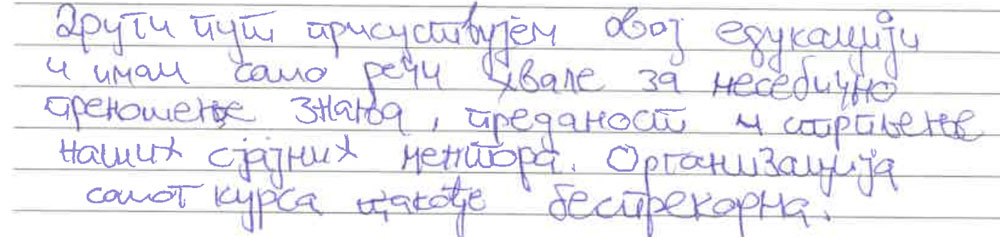 Други пут присуствујем овој едукацији
и имам само речи хвале за несебично
преношење знања, преданост и стрпљење
наших сјајних ментора. Организација
самог курса такође беспрекорна.